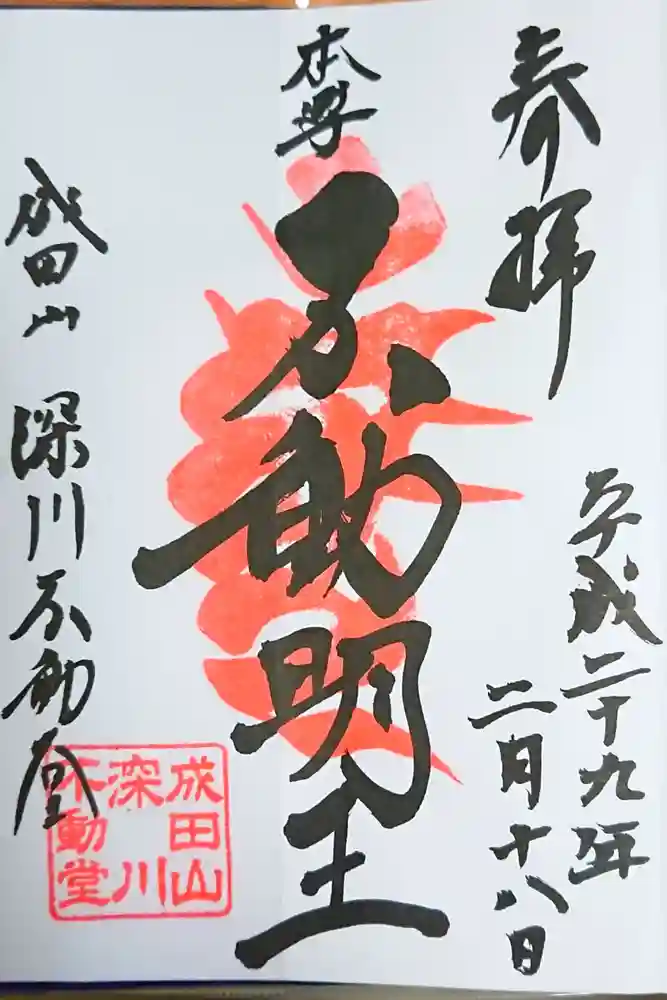 奉拝
平成二十九年
二月十八日
本尊
不動明王
成田山 深川不動堂
成田山
深川
不動堂